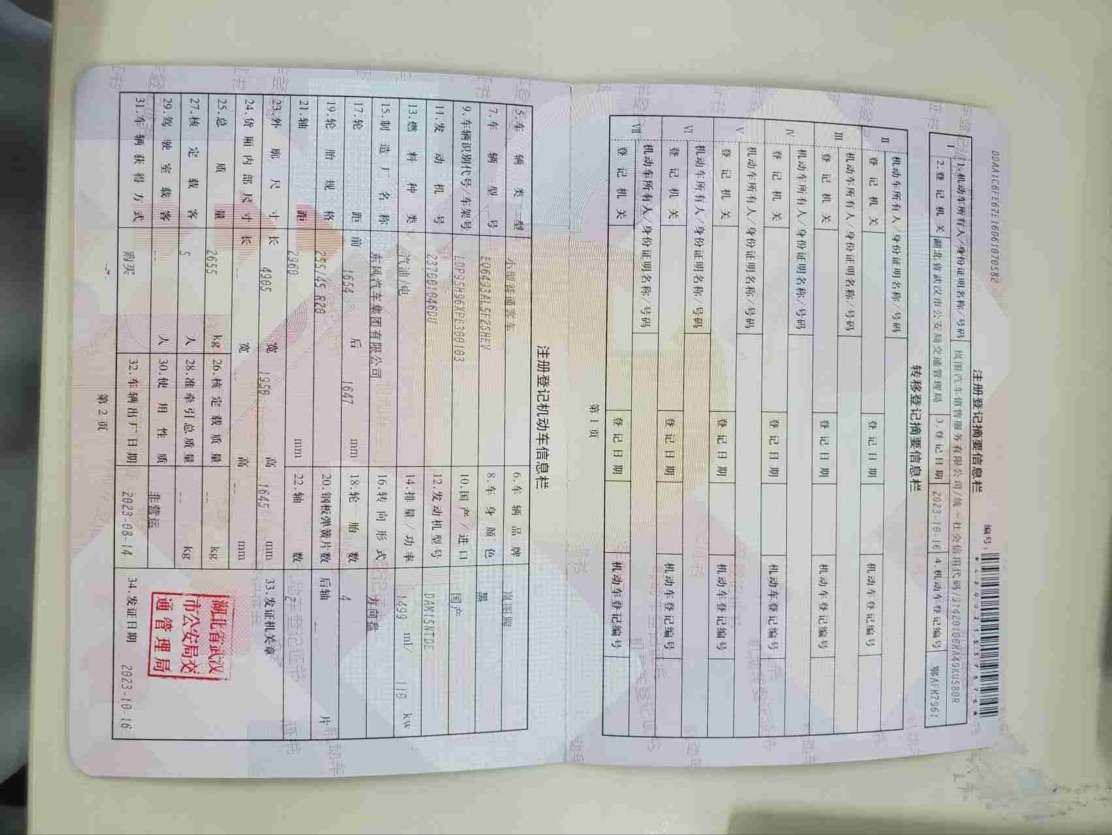 注册登记摘要信息栏
编号:
1.机动车所有人/身份证明名称/号码 岚图汽车销售服务有限公司/统一社会信用代码/
2.登记机关 湖北省武汉市公安局交通管理局 3.登记日期 2023-10-16 4.机动车登记编号 鄂AFK7961
转移登记摘要信息栏
II 机动车所有人/身份证明名称/号码
登记机关 登记日期 机动车登记编号
III 机动车所有人/身份证明名称/号码
登记机关 登记日期 机动车登记编号
IV 机动车所有人/身份证明名称/号码
登记机关 登记日期 机动车登记编号
V 机动车所有人/身份证明名称/号码
登记机关 登记日期 机动车登记编号
VI 机动车所有人/身份证明名称/号码
登记机关 登记日期 机动车登记编号
VII 机动车所有人/身份证明名称/号码
登记机关 登记日期 机动车登记编号
第 1 页
注册登记机动车信息栏
5.车辆类型 小型普通客车 6.车辆品牌 岚图牌
7.车辆型号 8.车身颜色 黑
9.车辆识别代号/车架号 10.国产/进口 国产
11.发动机号 12.发动机型号 DAM15NTDE
13.燃料种类 汽油/电 14.排量/功率 1499 ml/ 110 kw
15.制造厂名称 东风汽车集团有限公司 16.转向形式 方向盘
17.轮距 前 1654 后 1647 mm 18.轮胎数 4
19.轮胎规格 255/45 R20 20.钢板弹簧片数 后轴 -- 片
21.轴距 2960 mm 22.轴数 2
23.外廓尺寸 长 4905 宽 1950 高 1645 mm 33.发证机关章
24.货厢内部尺寸 长 -- 宽 -- 高 -- mm
25.总质量 2655 kg 26.核定载质量 -- kg
27.核定载客 5 人 28.准牵引总质量 -- kg
29.驾驶室载客 -- 人 30.使用性质 非营运
31.车辆获得方式 购买 32.车辆出厂日期 2023-08-14 34.发证日期 2023-10-16
湖北省武汉
市公安局交
通管理局
第 2 页